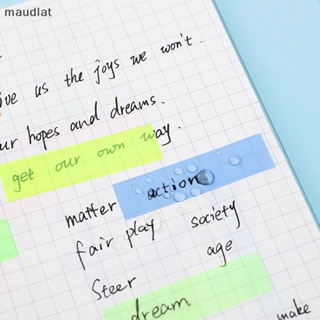 maudlat
ive us the joys we won't.
ur hopes and dreams.
get our own way.
matter action
fair play society
age
Steer
dream
make